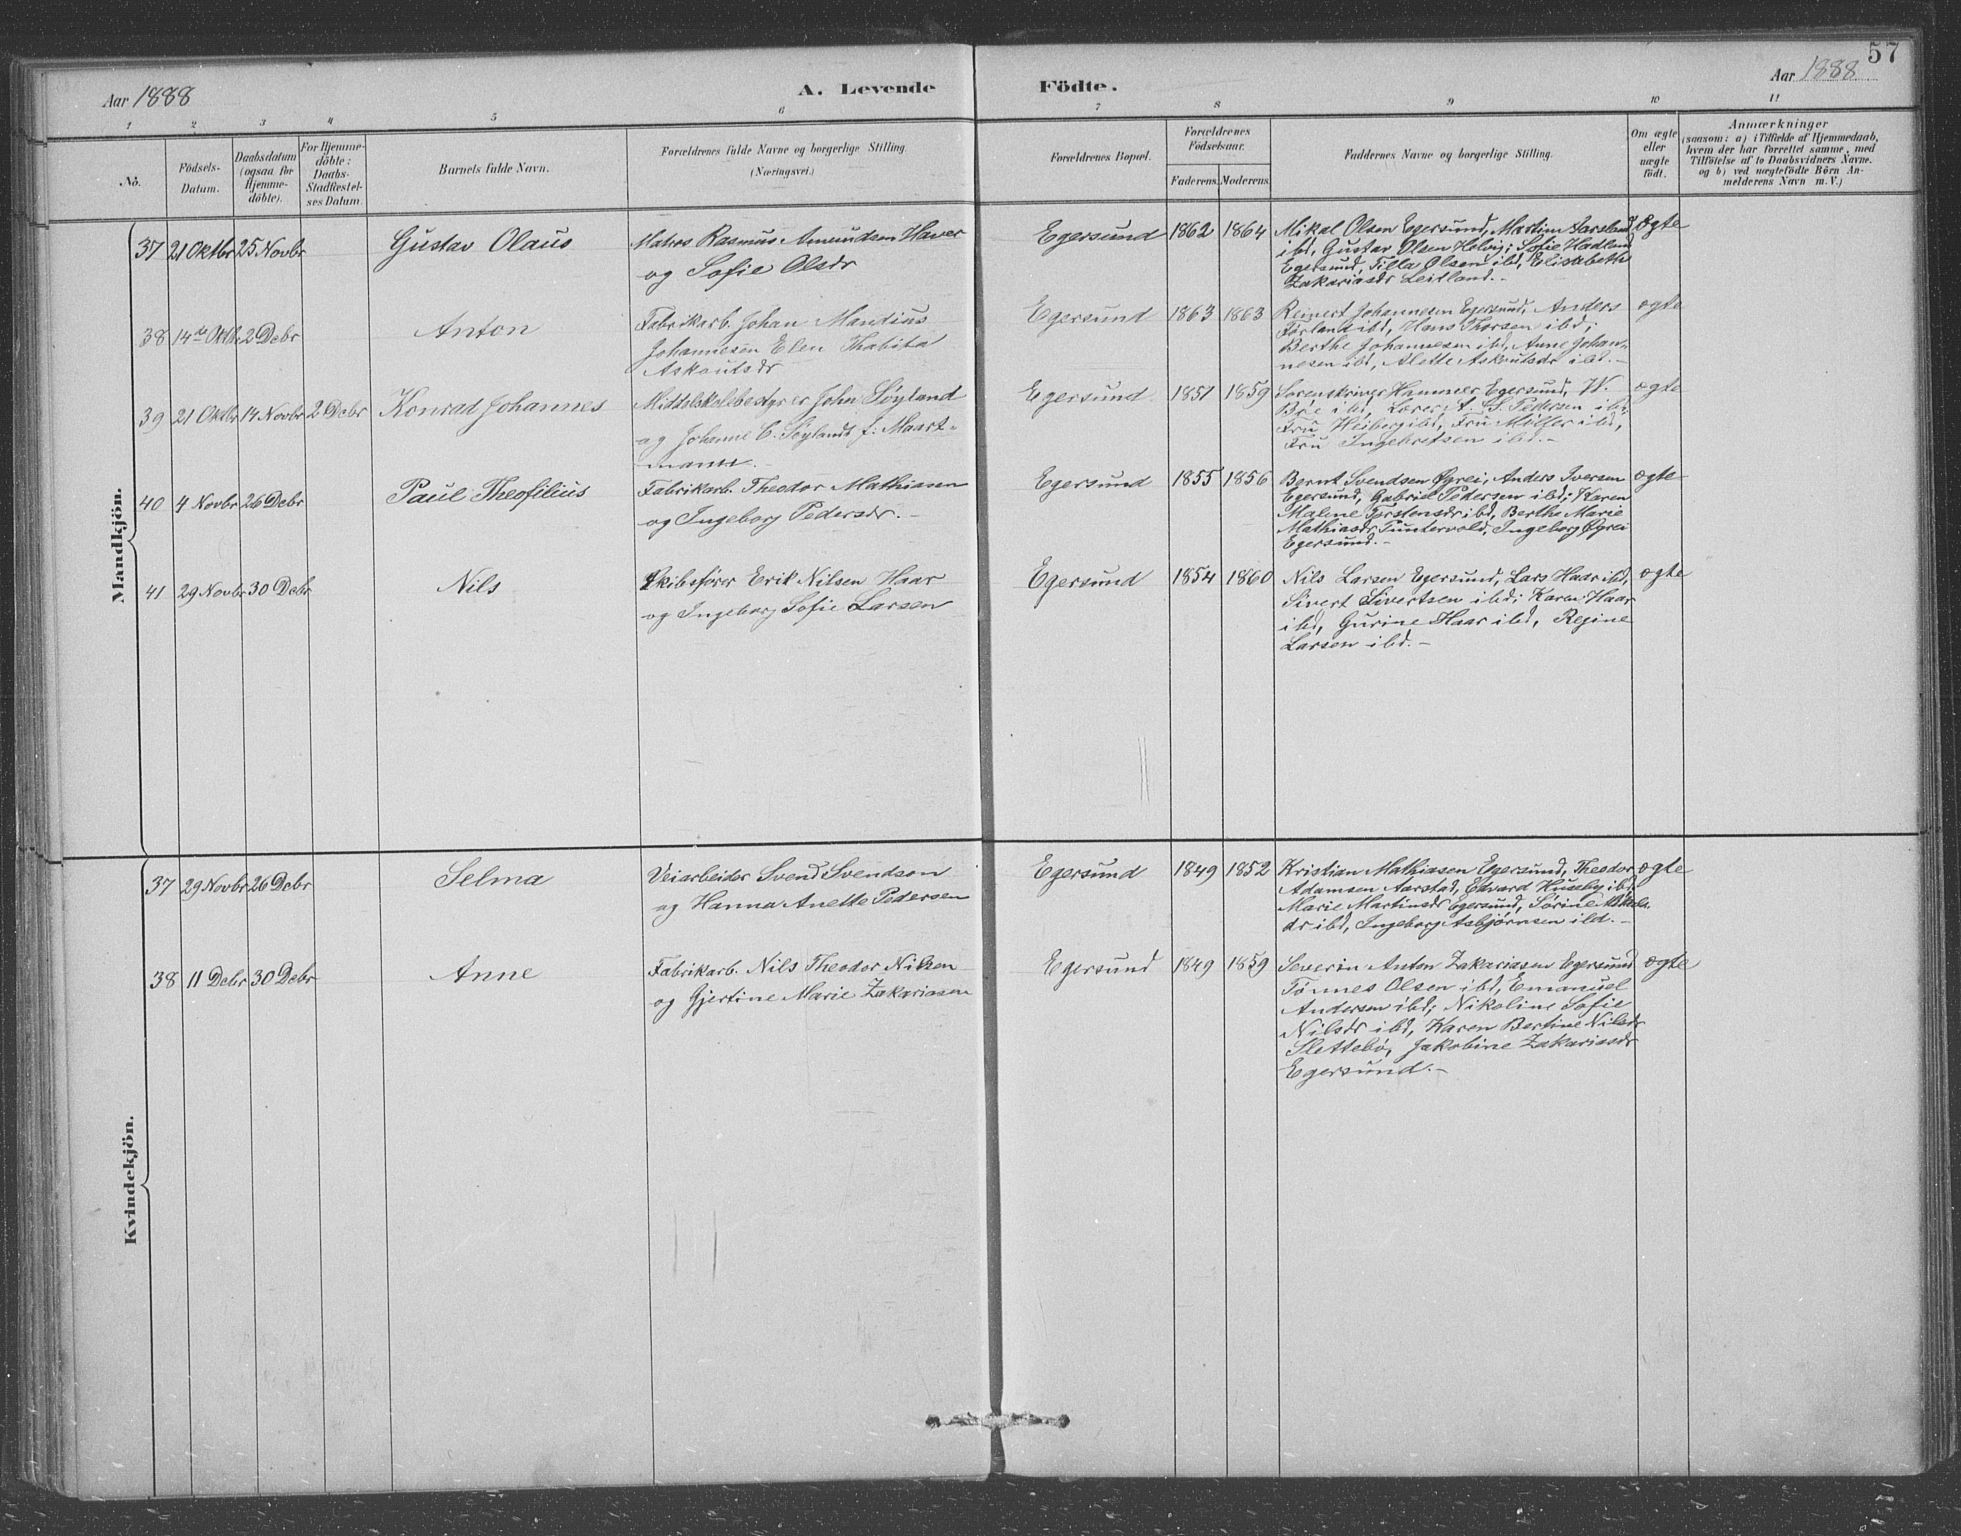 57
Aar 1888
A. Levende
Födte.
Aar 1888
1 2 3 4 5 6 7 8 9 10 11
No.
Födsels-
Datum.
Daabsdatum
(ogsaa for
Hjemme-
döbte).
For Hjemme-
döbte:
Daabs-
Stadfæstel-
ses Datum.
Barnets fulde Navn.
Forældrenes fulde Navne og borgerlige Stilling.
(Næringsvei.)
Forældrenes Bopæl.
Forældrenes
Födselsaar.
Faderens. Moderens.
Faddernes Navne og borgerlige Stilling.
Om ægte
eller
uægte
födt.
Anmærkninger
(saasom: a) i Tilfælde af Hjemmedaab,
hvem der har forrettet samme, med
Tilföielse af to Daabsvidners Navne.
og b) ved uægtefödte Börn An-
melderens Navn m. V.)
Mandkjön.
37 21 Oktbr 25 Novbr
Gustav Olaus
Matros Rasmus Amundsen Haver
og Sofie Olsdr
Egersund 1862 1864
Mikal Olsen Egersund, Martin Aarsland
ibd, Gustav Olsen Helvig; Sofie Hadland
Egersund, Tilla Olsen ibd, Elisabeth
Zakariasdr Leitland.-
Ægte
38 14de Oktbr 2 Debr
Anton
Fabrikarb. Johan Mandius
Johannesen Elen Thabita
Askoutsdr
Egersund 1863 1863
Reinert Johannesen Egersund, Anders
Førland ibd, Hans Thorsen ibd;
Berthe Johannesen ibd, Anne Johan-
nesen ibd, Alette Askoutsdr ibd.-
ægte
39 21 Oktbr 14 Novbr 2 Debr
Konrad Johannes
Middelskolebestyrer John Søyland
og Johanne C. Søyland f. Maart-
mann.-
Egersund. 1851 1859
Sorenskriver Hammer Egersund, W.
Brie ibd, Lærer A. G. Pedersen ibd;
Fru Weiberg ibd, Fru Møller ibd,
Fru Ingebretsen ibd.-
ægte
40 4 Novbr 26 Debr
Paul Theofilius
Fabrikarb. Theodor Mathiasen
og Ingeborg Pedersdr.-
Egersund 1855 1856
Bernt Svendsen Øyrei, Anders Iversen
Egersund, Gabriel Pedersen ibd; Karen
Malene Torstensdr ibd, Berthe Marie
Mathiasdr Puntervold, Ingeborg Øyrei
Egersund.-
ægte
41 29 Novbr 30 Debr
Nils
Skibsfører Erik Nilsen Haar
og Ingeborg Sofie Larsen
Egersund 1854 1860
Nils Larsen Egersund, Lars Haar ibd,
Sivert Sivertsen ibd; Karen Haar
ibd, Gurine Haar ibd, Regine
Larsen ibd.-
ægte
Kvindekjön.
37 29 Novbr 26 Debr
Selma
Veiarbeider Svend Svendsen
og Hanna Anette Pedersen
Egersund 1849 1852
Kristian Mathiasen Egersund, Theodor
Adamsen Aarstad, Edvard Huseby ibd;
Marie Martinsdr Egersund, Sørine
dr ibd, Ingeborg Asbjørnsen ibd.-
ægte
38 11 Debr 30 Debr
Anne
Fabrikarb. Nils Theodor Nilsen
og Gjertine Marie Zakariasen
Egersund 1849 1859
Severin Anton Zakariasen Egersund
Tønnes Olsen ibd, Emanuel
Andersen ibd; Nikoline Sofie
Nilsdr ibd, Karen Bertine Nilsdr
Slettebø, Jakobine Zakariasdr
Egersund.-
ægte